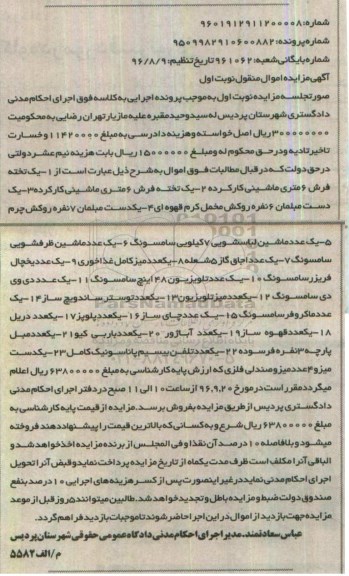 شماره: ۹۶۰۱۹۱۲۹۱۱۲۰۰۰۰۸
شماره پرونده: ۹۵۰۹۹۸۲۹۱۰۶۰۰۸۸۲
شماره بایگانی شعبه: ۹۶۱۰۶۲ تاریخ تنظیم: ۹۶/۸/۹
آگهی مزایده اموال منقول نوبت اول
صورتجلسه مزایده نوبت اول به موجب پرونده اجرایی به کلاسه فوق اجرای احکام مدنی
دادگستری شهرستان پردیس له سید وحید مقیره علیه مازیار تهران رضایی به محکومیت
۳۰۰۰۰۰۰۰۰ ریال اصل خواسته و هزینه دادرسی به مبلغ ۱۱۴۲۰۰۰۰ و خسارت
تاخیر تادیه و در حق محکوم له و مبلغ ۱۵۰۰۰۰۰۰ ریال بابت هزینه نیم عشر دولتی
در حق دولت که در قبال مطالبات فوق اموال به شرح ذیل عبارت است از ۱-یک تخته
فرش ۶ متری ماشینی کارکرده ۲-یک تخته فرش ۶ متری ماشینی کارکرده ۳-یک
دست مبلمان ۶ نفره روکش مخمل کرم قهوه ای ۴-یکدست مبلمان ۷ نفره روکش چرم
۵-یک عدد ماشین لباسشویی ۷ کیلویی سامسونگ ۶-یک عدد ماشین ظرفشویی
سامسونگ ۷-یک عدد اجاق گاز ۵ شعله ۸-یکعدد میز کامل غذاخوری ۹-یک عدد یخچال
فریزر سامسونگ ۱۰-یک عدد تلویزیون ۴۸ اینچ سامسونگ ۱۱-یک عدد دی وی
دی سامسونگ ۱۲-یکعدد میز تلویزیون ۱۳-یکعدد توستر ساندویچ ساز ۱۴-یک
عدد ماکروفر سامسونگ ۱۵-یک عدد چای ساز ۱۶-یکعدد پلوپز ۱۷-یکعدد دریل
۱۸-یکعدد قهوه ساز ۱۹-یکعدد آباژور ۲۰-یکعدد باربی کیو ۲۱-یکعدد مبل
پارچه ۳ نفره فرسوده ۲۲-یکعدد تلفن بیسیم پاناسونیک کامل ۲۳-یکدست
میز و ۴ عدد میز و صندلی فلزی که ارزش پایه کارشناسی به مبلغ ۶۳۸۰۰۰۰۰ ریال اعلام
میگردد مقرر است در مورخ ۹۶.۹.۲۰ از ساعت ۱۰ الی ۱۱ صبح در دفتر اجرای احکام مدنی
دادگستری پردیس از طریق مزایده بفروش برسد. مزایده از قیمت پایه کارشناسی به
مبلغ ۶۳۸۰۰۰۰۰ ریال شرع و به کسانی که بالاترین قیمت را پیشنهاد دهند فروخته
میشود و بلافاصله ۱۰ درصد آن نقدا و فی المجلس از برنده مزایده اخذ خواهد شد و
الباقی آنرا مکلف است ظرف مدت یکماه از تاریخ مزایده پرداخت نماید و قبض آنرا تحویل
اجرای احکام مدنی نماید در غیر اینصورت پس از کسر هزینه های اجرایی ۱۰ درصد بنفع
صندوق دولت ضبط و مزایده باطل و تجدید خواهد شد. طالبین میتوانند ۵ روز قبل از موعد
مزایده جهت بازدید از اموال در این اجرا حاضر شوند تا موجبات بازدید فراهم گردد.
عباس سعادتمند. مدیر اجرای احکام مدنی دادگاه عمومی حقوقی شهرستان پردیس
م/الف ۵۵۸۲